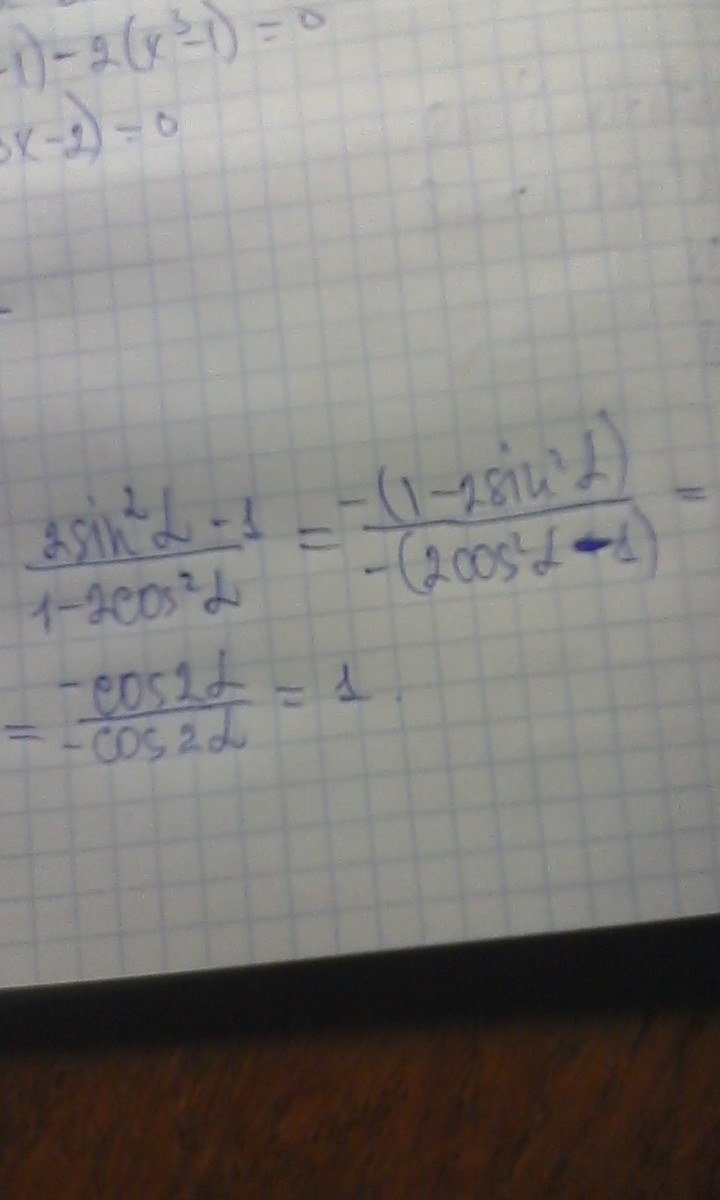 -1) - 2(x³-1) = 0
3x-2) = 0
(2sin²α - 1)/(1-2cos²α) = (-(1-2sin²α))/(-(2cos²α - 1)) =
= (-cos2α)/(-cos2α) = 1.